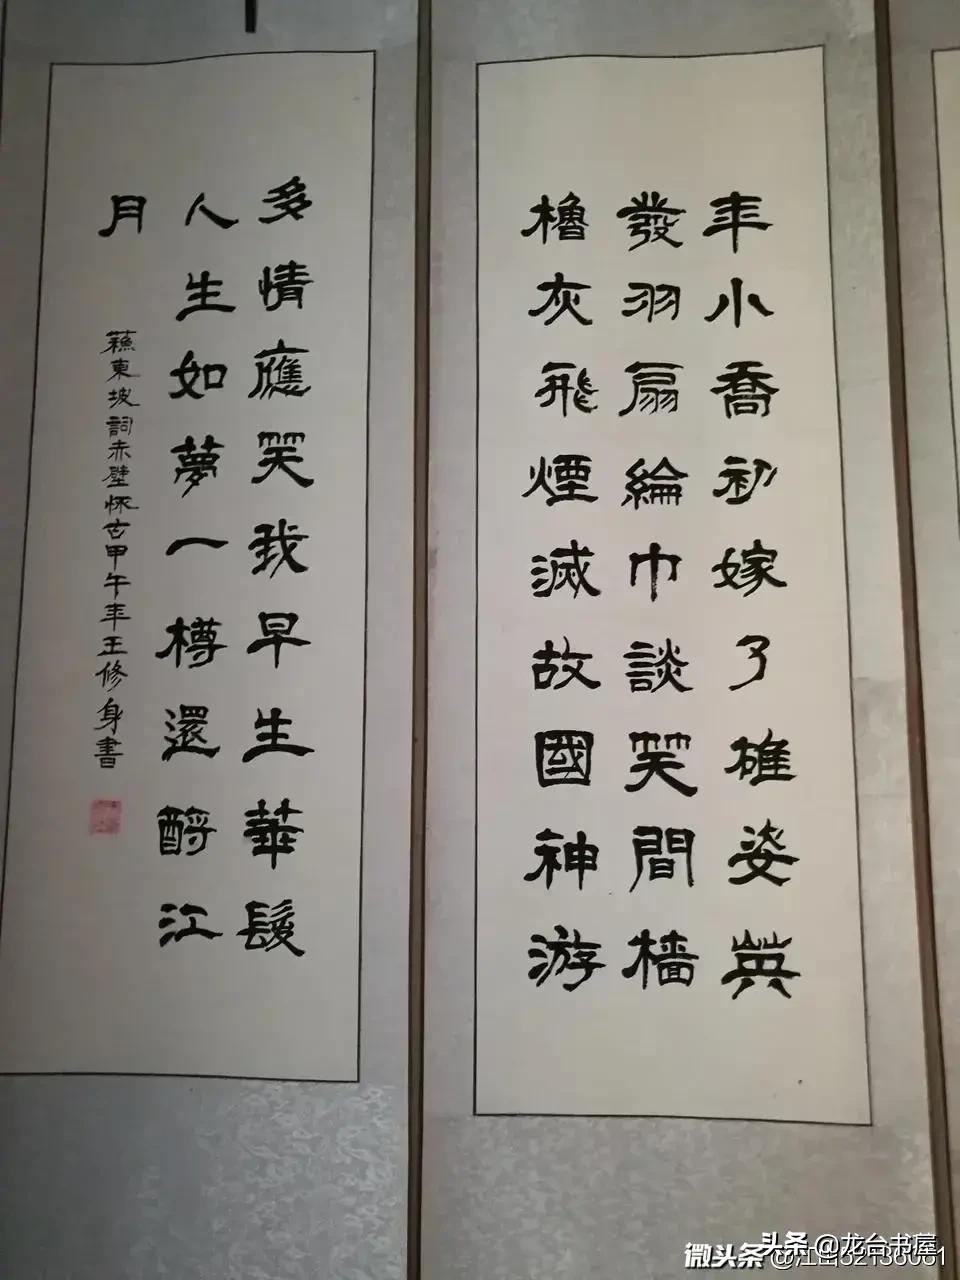 年小喬初嫁了雄姿英
發羽扇綸巾談笑間檣
櫓灰飛煙滅故國神游
多情應笑我早生華髮
人生如夢一樽還酹江
月
蘇東坡詞赤壁懷古甲午年王修身書
头条 @龙台书屋
微头条